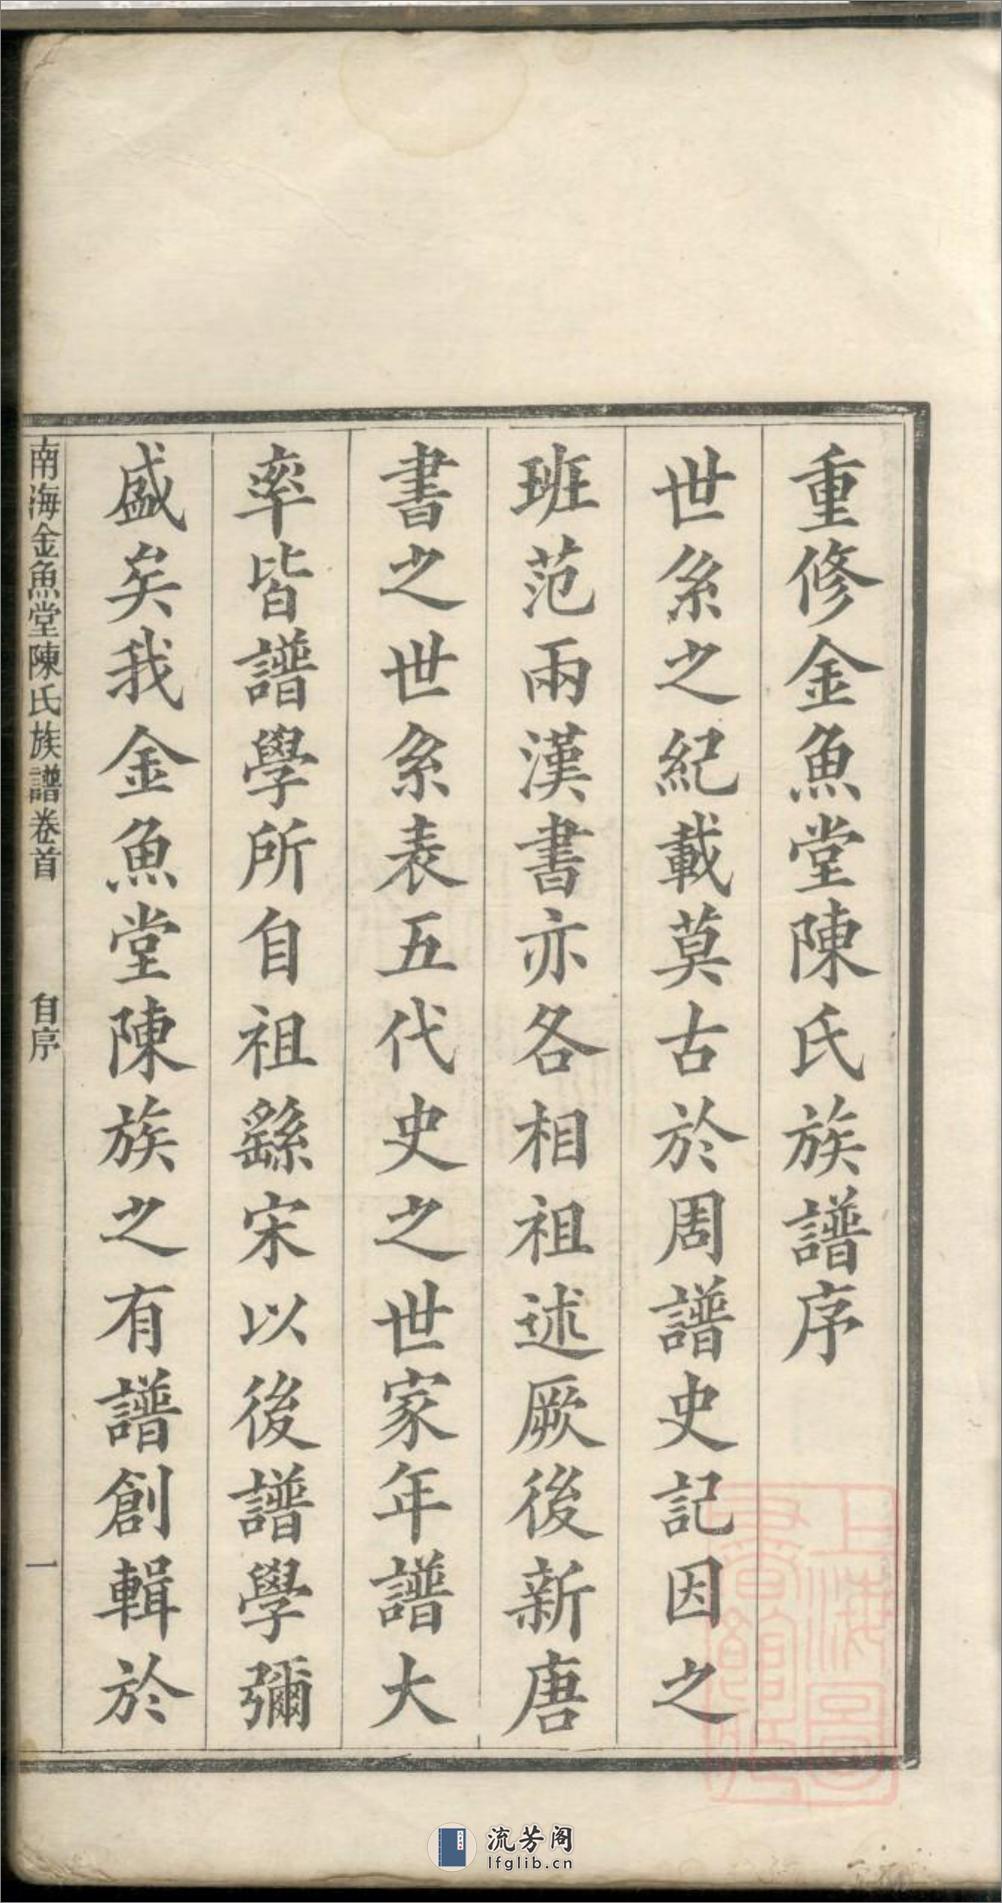 重修金魚堂陳氏族譜序
世系之紀載莫古於周譜史記因之
班范兩漢書亦各相祖述厥後新唐
書之世系表五代史之世家年譜大
率皆譜學所自祖繇宋以後譜學彌
盛矣我金魚堂陳族之有譜創輯於
南海金魚堂陳氏族譜卷首 自序 一
上海圖
書館藏
流芳阁
lfglib.cn